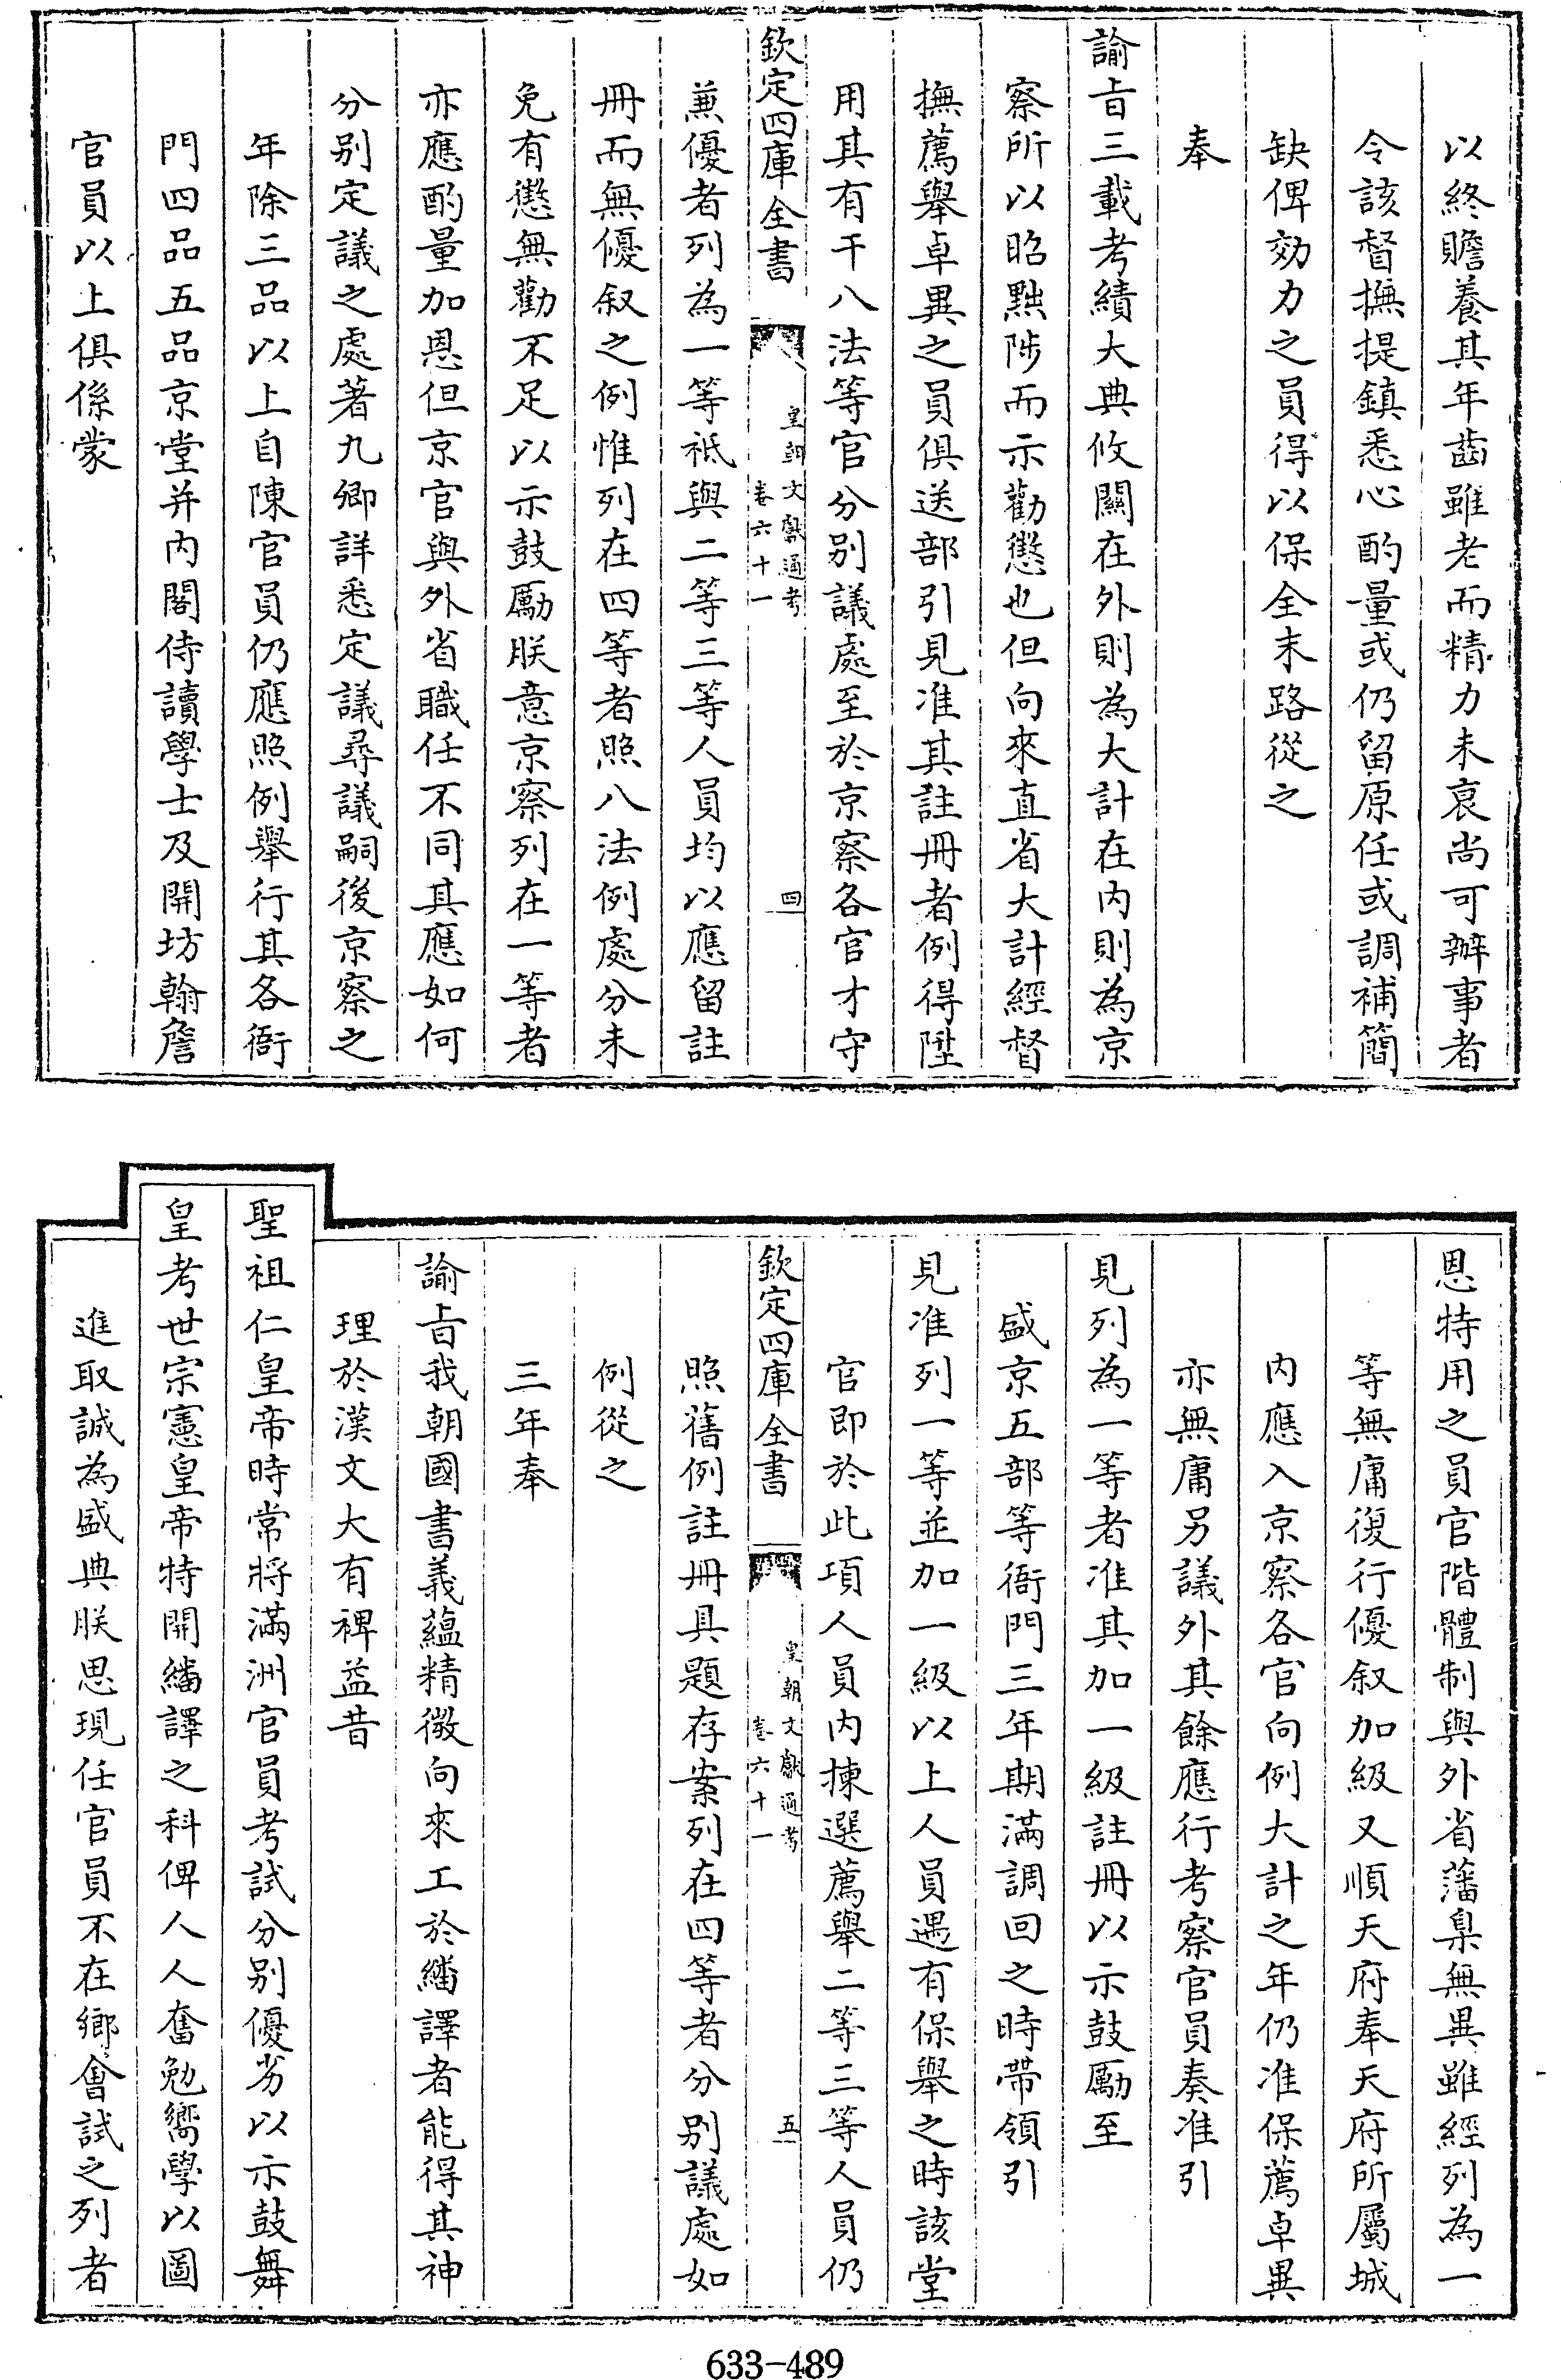 以終贍養其年齒雖老而精力未衰尚可辦事者
令該督撫提鎮悉心酌量或仍留原任或調補簡
缺俾効力之員得以保全末路從之
奉
諭旨三載考績大典攸關在外則為大計在内則為京
察所以昭黜陟而示勸懲也但向來直省大計經督
撫薦舉卓異之員俱送部引見准其註冊者例得陞
用其有干八法等官分别議處至於京察各官才守
欽定四庫全書
皇朝文獻通考
卷六十一
四
兼優者列為一等祗與二等三等人員均以應留註
冊而無優叙之例惟列在四等者照八法例處分未
免有懲無勸不足以示鼓勵朕意京察列在一等者
亦應酌量加恩但京官與外省職任不同其應如何
分别定議之處著九卿詳悉定議尋議嗣後京察之
年除三品以上自陳官員仍應照例舉行其各衙
門四品五品京堂并内閣侍讀學士及開坊翰詹
官員以上俱係蒙
恩特用之員官階體制與外省藩臬無異雖經列為一
等無庸復行優叙加級又順天府奉天府所屬城
内應入京察各官向例大計之年仍准保薦卓異
亦無庸另議外其餘應行考察官員奏准引
見列為一等者准其加一級註冊以示鼓勵至
盛京五部等衙門三年期滿調回之時帶領引
見准列一等並加一級以上人員遇有保舉之時該堂
官即於此項人員内揀選薦舉二等三等人員仍
欽定四庫全書
皇朝文獻通考
卷六十一
五
照舊例註冊具題存案列在四等者分别議處如
例從之
三年奉
諭旨我朝國書義蘊精微向來工於繙譯者能得其神
理於漢文大有裨益昔
聖祖仁皇帝時常將滿洲官員考試分别優劣以示鼓舞
皇考世宗憲皇帝特開繙譯之科俾人人奮勉嚮學以圖
進取誠為盛典朕思現任官員不在鄉會試之列者
633-489